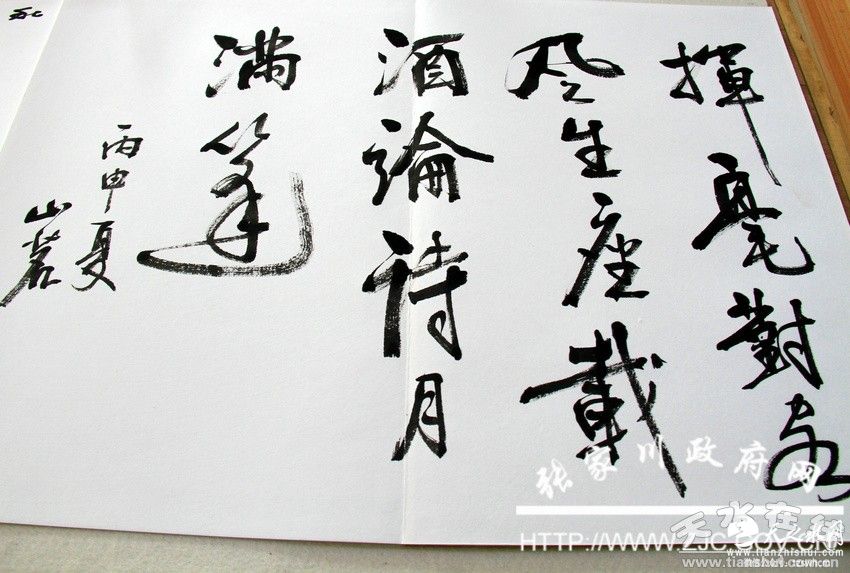 揮毫對客
風生座載
酒論詩月
滿篷
丙申夏
山
张家川政府网
HTTP://WWW.ZJC.GOV.CN
天水在线
www.tianzhishui.com